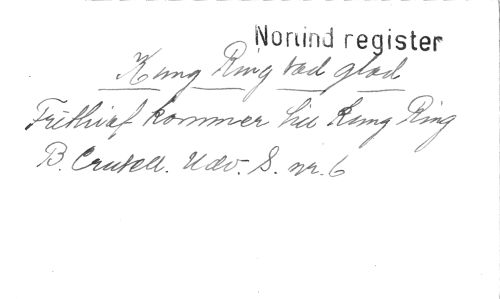 Norlind register
Kung Ring vad glad
Frithiof kommer till Kung Ring
B. Crusell. Udv. S. nr. 6